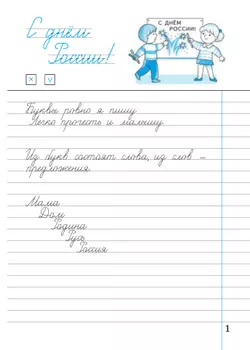 С днём
России!
С ДНЁМ
РОССИИ!
× v
Буквы ровно я пишу
Легко прочесть и малышу.
Из букв состоят слова, из слов –
предложения.
Мама
Дом
Родина
Русь
Россия
1